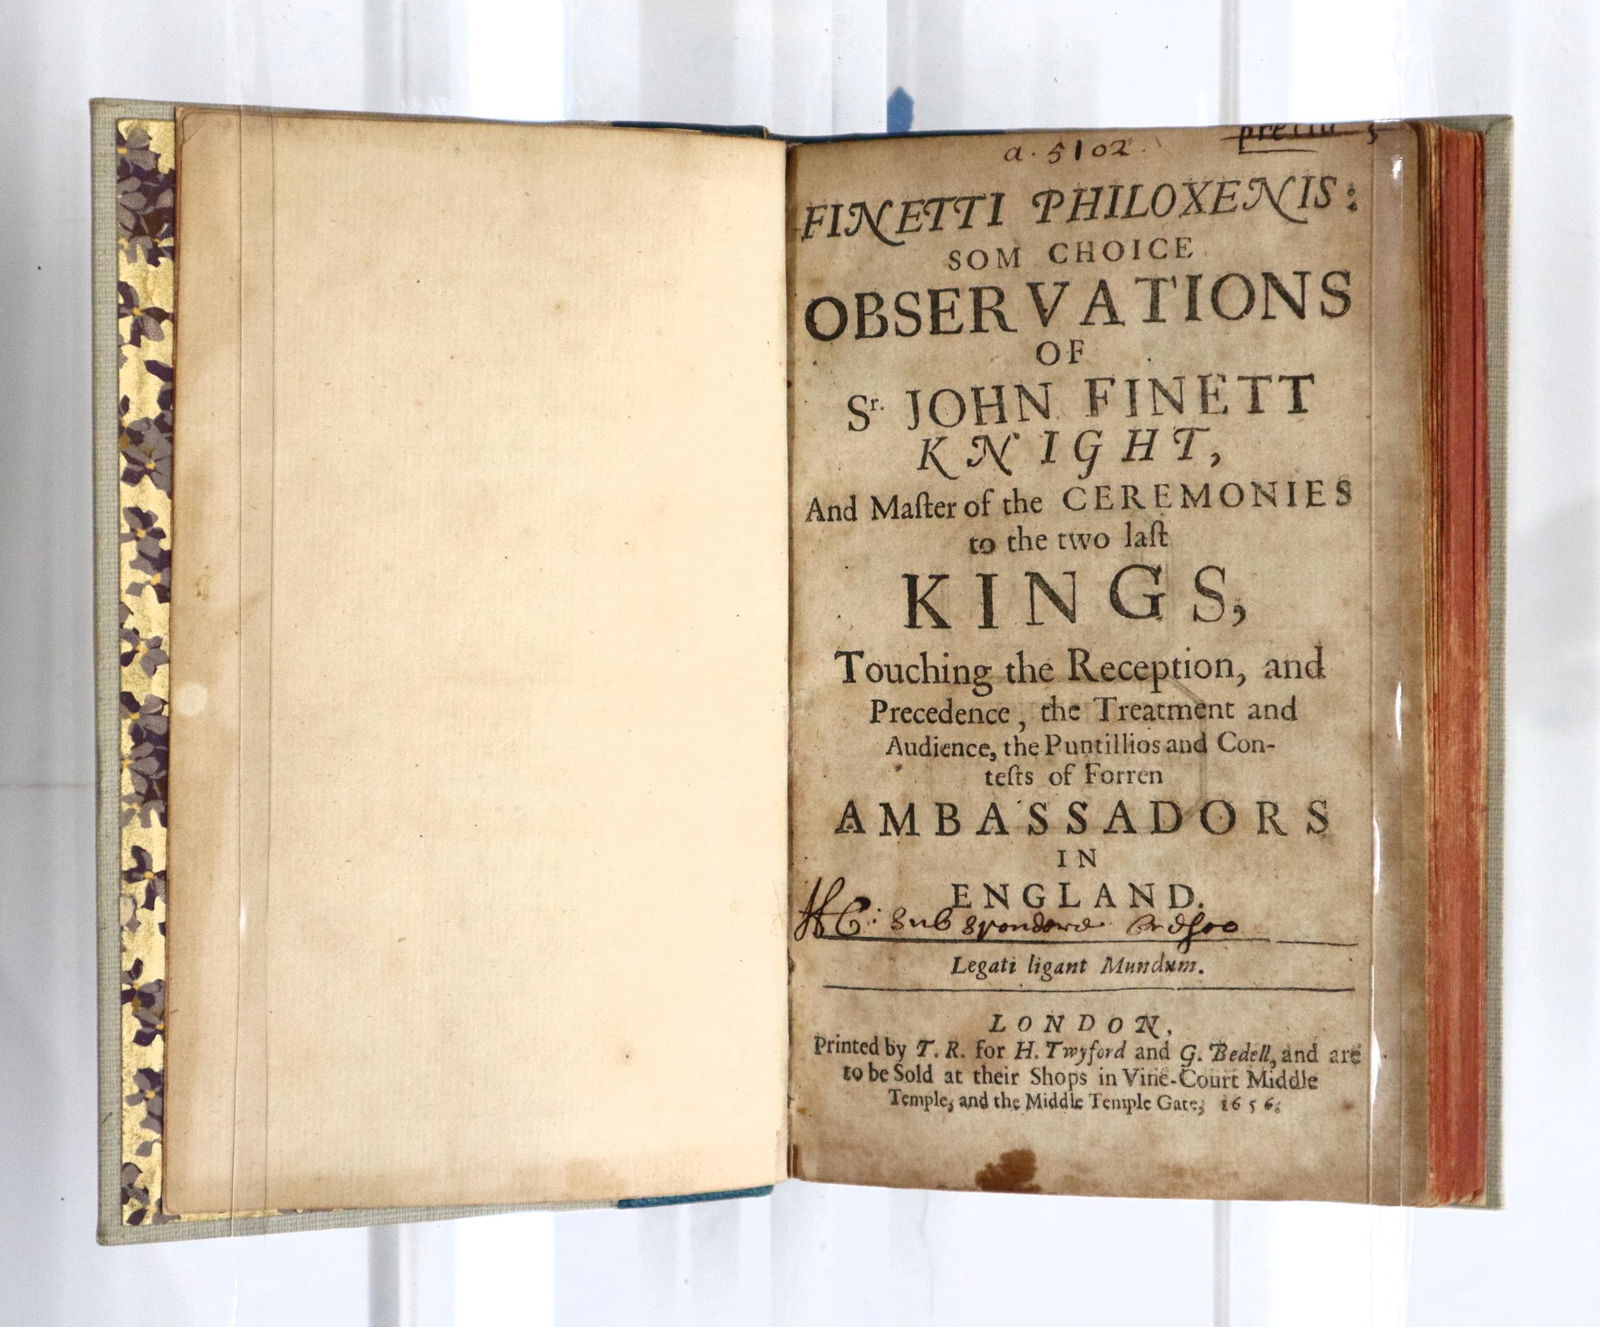 a. 5102.
FINETTI PHILOXENIS:
SOM CHOICE
OBSERVATIONS
OF
Sr. JOHN FINETT
KNIGHT,
And Maſter of the CEREMONIES
to the two laſt
KINGS,
Touching the Reception, and
Precedence, the Treatment and
Audience, the Puntillios and Con-
teſts of Forren
AMBASSADORS
IN
ENGLAND.
Sub
Legati ligant Mundum.
LONDON,
Printed by T. R. for H. Twyford and G. Bedell, and are
to be Sold at their Shops in Vine-Court Middle
Temple, and the Middle Temple Gate; 1656.